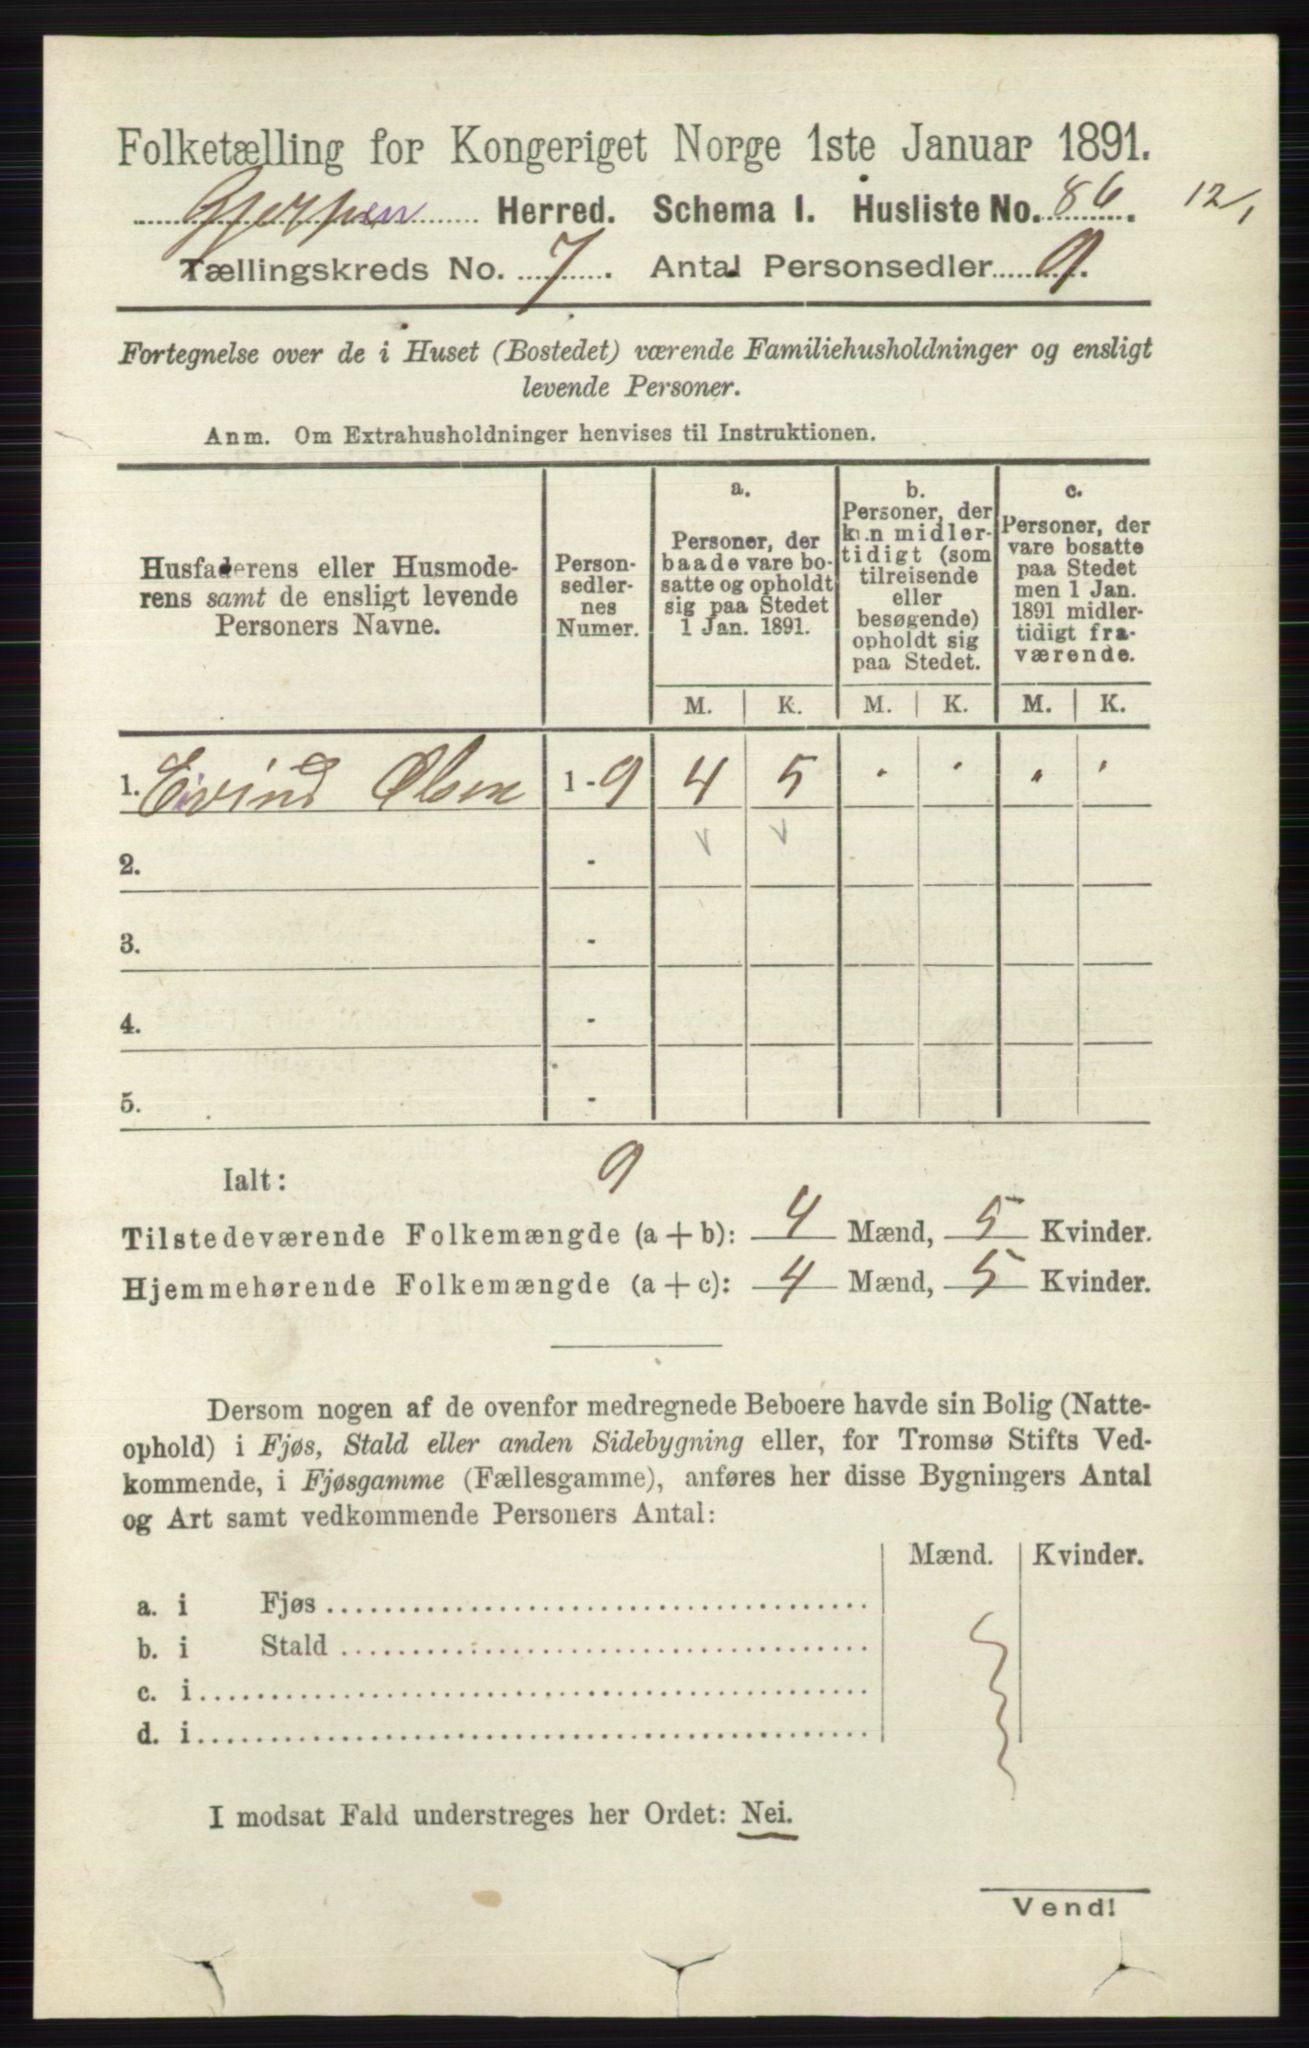 Folketælling for Kongeriget Norge 1ste Januar 1891.
Gjerpen Herred. Schema I. Husliste No. 86. 12/1
Tællingskreds No. 7. Antal Personsedler 9.
Fortegnelse over de i Huset (Bostedet) værende Familiehusholdninger og ensligt
levende Personer.
Anm. Om Extrahusholdninger henvises til Instruktionen.
Husfaderens eller Husmode-
rens samt de ensligt levende
Personers Navne.
Person-
sedler-
nes
Numer.
a.
Personer, der
baade vare bo-
satte og opholdt
sig paa Stedet
1 Jan. 1891.
b.
Personer, der
kun midler-
tidigt (som
tilreisende
eller
besøgende)
opholdt sig
paa Stedet.
c.
Personer, der
vare bosatte
paa Stedet
men 1 Jan.
1891 midler-
tidigt fra-
værende.
M. K. M. K. M. K.
1. Eivind Olsen 1 - 9 4 5 . . . .
2. - v v
3. -
4. -
5. -
Ialt: 9
Tilstedeværende Folkemængde (a + b): 4 Mænd, 5 Kvinder.
Hjemmehørende Folkemængde (a + c): 4 Mænd, 5 Kvinder.
Dersom nogen af de ovenfor medregnede Beboere havde sin Bolig (Natte-
ophold) i Fjøs, Stald eller anden Sidebygning eller, for Tromsø Stifts Ved-
kommende, i Fjøsgamme (Fællesgamme), anføres her disse Bygningers Antal
og Art samt vedkommende Personers Antal:
Mænd. Kvinder.
a. i Fjøs
b. i Stald
c. i
d. i
I modsat Fald understreges her Ordet: Nei.
Vend!